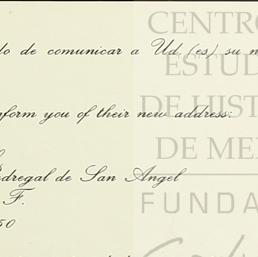 do de comunicar a Ud. (es) su n
nform you of their new address:
edregal de San Angel
F.
50
CENTRO
ESTUD
DE HIST
DE ME
FUNDA